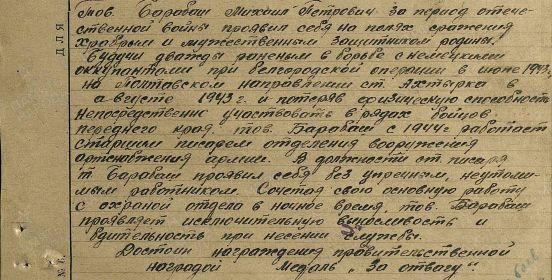 Тов. Барабаш Михаил Петрович за период отече-
ственной войны проявил себя на полях сражения
храбрым и мужественным защитником родины.
Будучи дважды раненым в борьбе с немецкими
оккупантами при белгородской операции в июле 1943г.
на Полтавском направлении ст. Ахтырка в
августе 1943 г. и потеряв физическую способность
непосредственно участвовать в рядах бойцов
переднего края, тов. Барабаш с 1944г. работает
старшим писарем отделения вооружения
артснабжения армии. В должности ст. писаря
т. Барабаш проявил себя без упречным, неутоми-
мым работником. Сочетая свою основную работу
с охраной отдела в ночное время, тов. Барабаш
проявляет исключительную выносливость и
бдительность при несении службы.
Достоин награждения правительственной
наградой Медаль „За отвагу“.
ДЛЯ